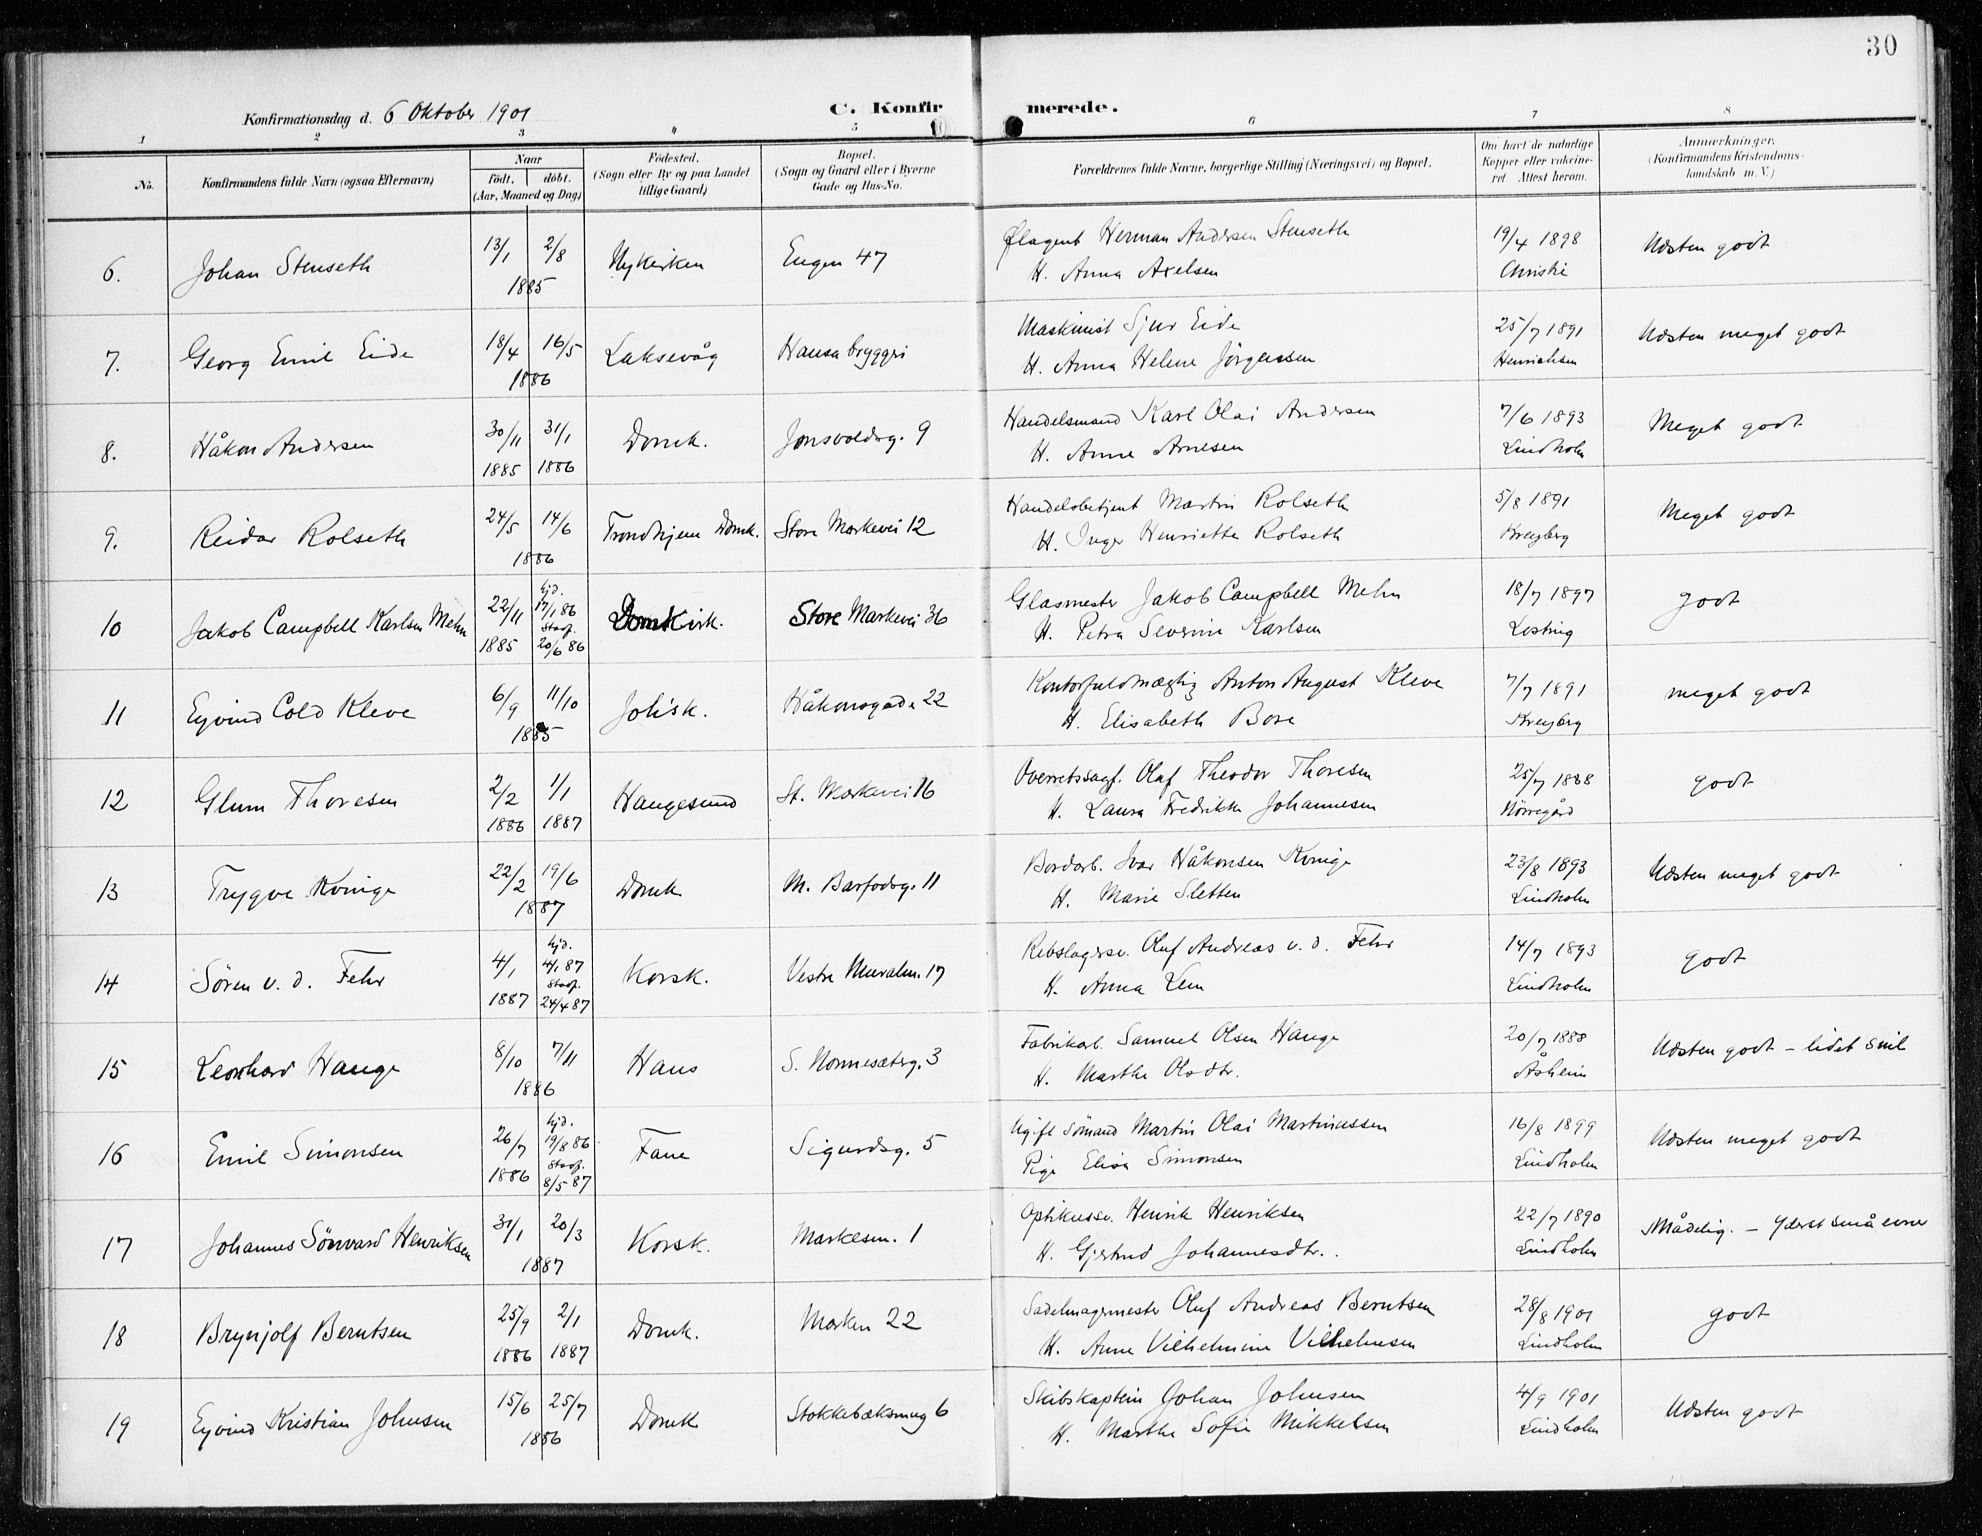 30
Konfirmationsdag d. 6 Oktober 1901
C. Konfirmerede.
1 2 3 4 5 6 7 8
No.
Konfirmandens fulde Navn (ogsaa Efternavn)
Naar
födt. döbt.
(Aar, Maaned og Dag)
Födested.
(Sogn eller By og paa Landet
tillige Gaard)
Bopæl.
(Sogn og Gaard eller i Byerne
Gade og Hus-No.
Forældrenes fulde Navne, borgerlige Stilling (Næringsvei) og Bopæl.
Om havt de naturlige
Kopper eller vakcine-
ret. Attest herom.
Anmærkninger.
(Konfirmandens Kristendoms-
kundskab m. V.)
6. Johan Stenseth 13/1 2/8 1885 Nykirken Engen 47
Ølagent Herman Andersen Stenseth
H. Anna Axelsen
19/4 1898
Christie
Næsten godt
7. Georg Emil Eide 18/4 16/5 1886 Laksevåg Hansa bryggri
Maskinist Sjur Eide
H. Anna Helene Jörgensen
25/7 1891
Henrichsen
Næsten meget godt
8. Håkon Andersen 30/11 1885 31/1 1886 Domk. Jonsvoldsg. 9
Handelsmand Karl Olai Andersen
H. Anne Arnesen
7/6 1893
Lindholm
Meget godt
9. Reidar Rolseth 24/5 14/6 1886 Trondhjem Domk. Store Markevei 12
Handelsbetjent Martin Rolseth
H. Inger Henriette Rolseth
5/8 1891
Kreyberg
Meget godt
10 Jakob Campbell Karlsen Mehn 22/11 1885 hjd. 17/1 86 Stadf. 20/6 86 Domkirk. Store Markevei 36
Glasmester Jakob Campbell Mehn
H. Petra Severine Karlsen
18/7 1897
Losting
godt
11 Eyvind Cold Kleve 6/9 11/10 1885 Johsk. Håkonsgade 22
Kontorfuldmægtig Anton August Kleve
H. Elisabeth Bose
7/7 1891
Kreyberg
meget godt
12 Glum Thoresen 2/2 1886 1/1 1887 Haugesund St. Markevei 16
Overretssagf. Olaf Theodor Thoresen
H. Laura Fredrikke Johannesen
25/7 1888
Nörregård
godt
13 Trygve Kvinge 22/2 19/6 1887 Domk M. Barfodsg. 11
Bordarb. Ivar Håkonsen Kvinge
H. Marie Sletten
23/8 1893
Lindholm
Næsten meget godt
14 Sören v. d. Fehr 4/1 1887 hjd. 4/1 87 Stadf. 24/4 87 Korsk. Vestre Muralm. 17
Rebslagersv. Oluf Andreas v. d. Fehr
H. Anna Lem
14/7 1893
Lindholm
godt
15 Leonhard Hauge 8/10 7/11 1886 Haus S. Nonnesæterg. 3
Fabrikarb. Samuel Olsen Hauge
H. Marthe Olsdtr.
20/7 1888
Åsheim
Næsten godt – lidet snil
16 Emil Simonsen 26/7 1886 hjd. 19/8 86 Stadf. 8/5 87 Fane Sigurdsg. 5
Ugift Sömand Martin Olai Martinussen
Pige Elisa Simonsen
16/8 1899
Lindholm
Næsten meget godt
17 Johannes Sönvard Henriksen 31/1 20/3 1887 Korsk. Markesm. 1
Optikussv. Henrik Henriksen
H. Gjertrud Johannesdtr.
22/7 1890
Lindholm
Mådelig. – Yderst små evner
18 Brynjolf Berntsen 25/9 1886 2/1 1887 Domk. Marken 22
Sadelmagermester Oluf Andreas Berntsen
H. Anne Vilhelmine Vilhelmsen
28/8 1901
Lindholm
godt
19 Eyvind Kristian Johnsen 15/6 25/7 1886 Domk Stokkebæksmug 6
Skibskaptein Johan Johnsen
H. Marthe Sofie Mikkelsen
4/9 1901
Lindholm
Næsten godt